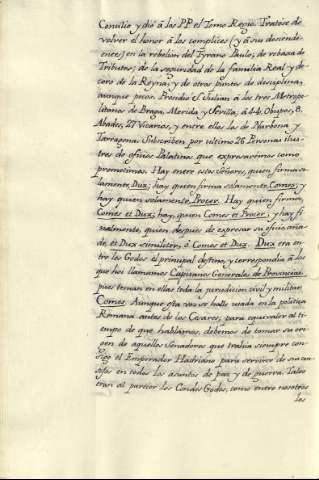 Concilio y dió á las PP. el Tomo Regio. Tratóse de
volver el honor á los complices (y á sus descendien-
tes) en la rebelion del Tyrano Paulo; de rebaxa de
Tributos; de la seguridad de la familia Real y de-
coro de la Reyna; y de otros puntos de disciplina,
aunque pocos. Presidió S. Julian á los tres Metropo-
litanos de Braga, Merida y Sevilla; á 44. Obispos, 8.
Abades, 27 Vicarios, y entre ellos los de Narbona y
Tarragona. Subscriben por ultimo 26 Personas Ilus-
tres de oficios Palatinos que expresarémos como
prometimos. Hay entre estos Señores, quien firma so-
lamente, Dux; hay quien firma solamente, Comes; y
hay quien solamente, Procer. Hay quien firma,
Comes et Dux; hay, quien Comes et Procer, y hay fi-
nalmente, quien despues de expresar su oficio aña-
de, et Dux similiter, ó Comes et Dux. Dux era en-
tre los Godos el principal destino, y correspondia á los
que hoi llamamos Capitanes Generales de Provincias,
pues tenian en ellas toda la jurisdiccion civil y militar.
Comes Aunque esta voz se halle usada en la politica
Romana antes de los Cesares; para equivaler al ti-
empo de que hablamos, debemos de tomar su ori-
gen de aquellos Senadores que trahia siempre con-
sigo el Emperador Hadriano para servirse de su con-
sejo en todos los asuntos de paz y de guerra. Tales
eran al parecer los Condes Godos, como entre nosotros
los